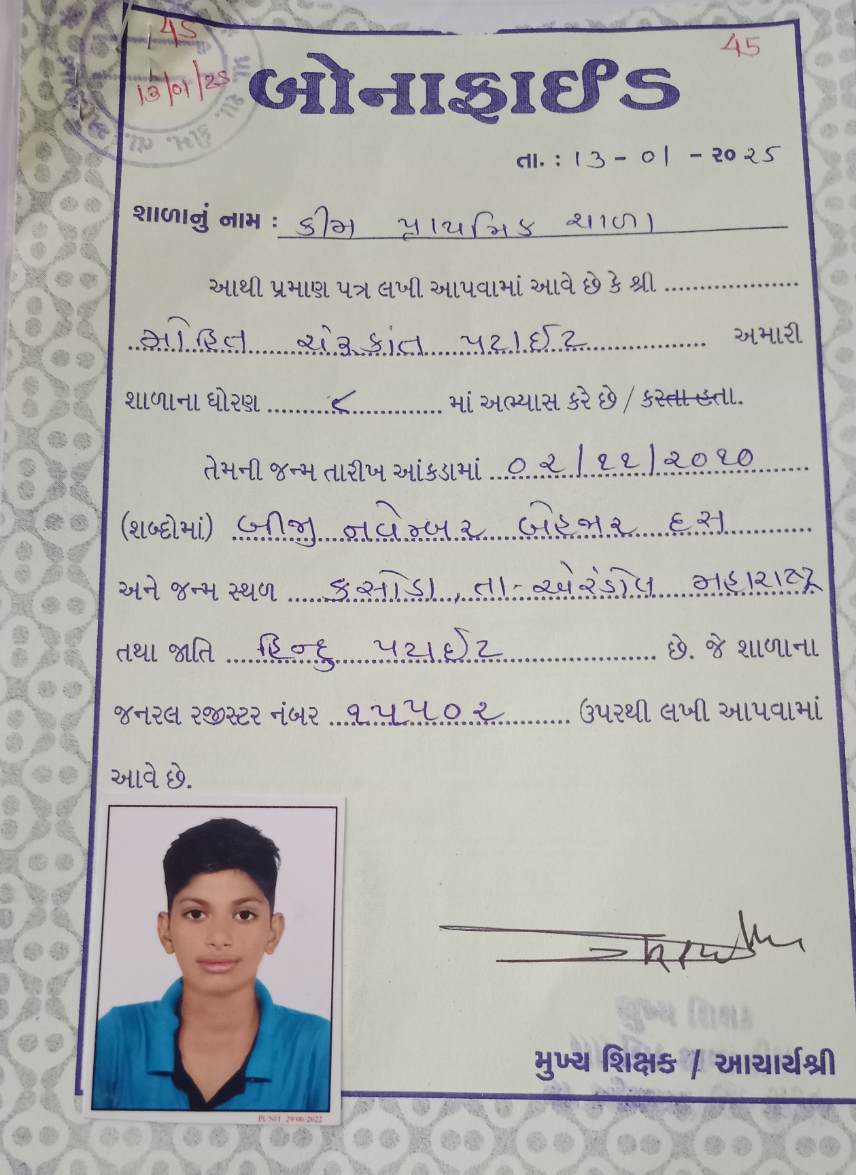 45
13/01/25
45
બોનાફાઈડ
તા. : 13 - 01 - ૨૦૨૫
શાળાનું નામ : કીમ પ્રાથમિક શાળા
આથી પ્રમાણ પત્ર લખી આપવામાં આવે છે કે શ્રી
મોહિત ચંદ્રકાંત પટાઈટ અમારી
શાળાના ધોરણ ૮ માં અભ્યાસ કરે છે / કરતા હતા.
તેમની જન્મ તારીખ આંકડામાં ૦૨/૧૧/૨૦૧૦
(શબ્દોમાં) બીજી નવેમ્બર બેહજાર દસ
અને જન્મ સ્થળ કસોડા, તા-એરંડોલ મહારાષ્ટ્ર
તથા જાતિ હિન્દુ પટાઈટ છે. જે શાળાના
જનરલ રજીસ્ટર નંબર ૧૫૫૦૨ ઉપરથી લખી આપવામાં
આવે છે.
PUNIT 29/06/2022
મુખ્ય શિક્ષક / આચાર્યશ્રી